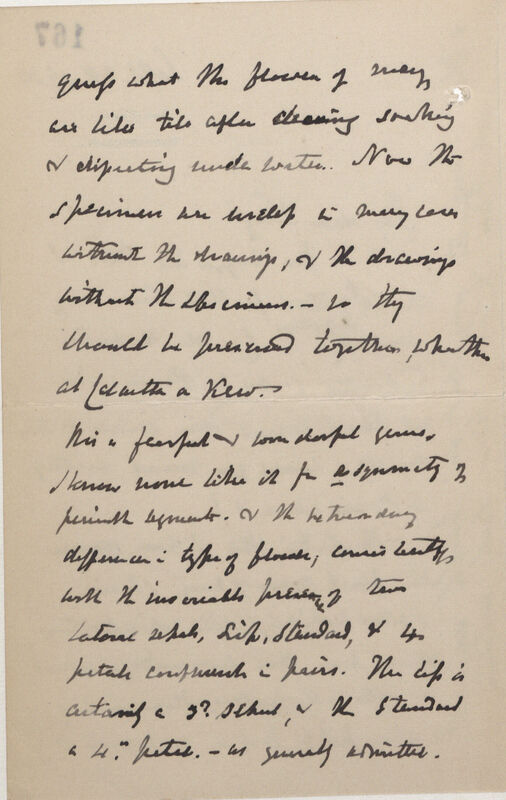 167
guess what the flower of many
are like till after soaking
& dissecting under water. Now the
specimens are useless in many cases
without the drawings, & the drawings
without the specimens. – so they
should be preserved together, whether
at Calcutta or Kew.
It is a fearful & wonderful genus.
I know none like it for asymmetry of
perianth segments. & the extraordinary
difference in type of flower; consistently
with the invariable presence of two
lateral sepals, Lip, Standard, & 4
petals confluent in pairs. The Lip is
certainly a 3rd sepal, & the Standard
a 4th petal. – as generally admitted.